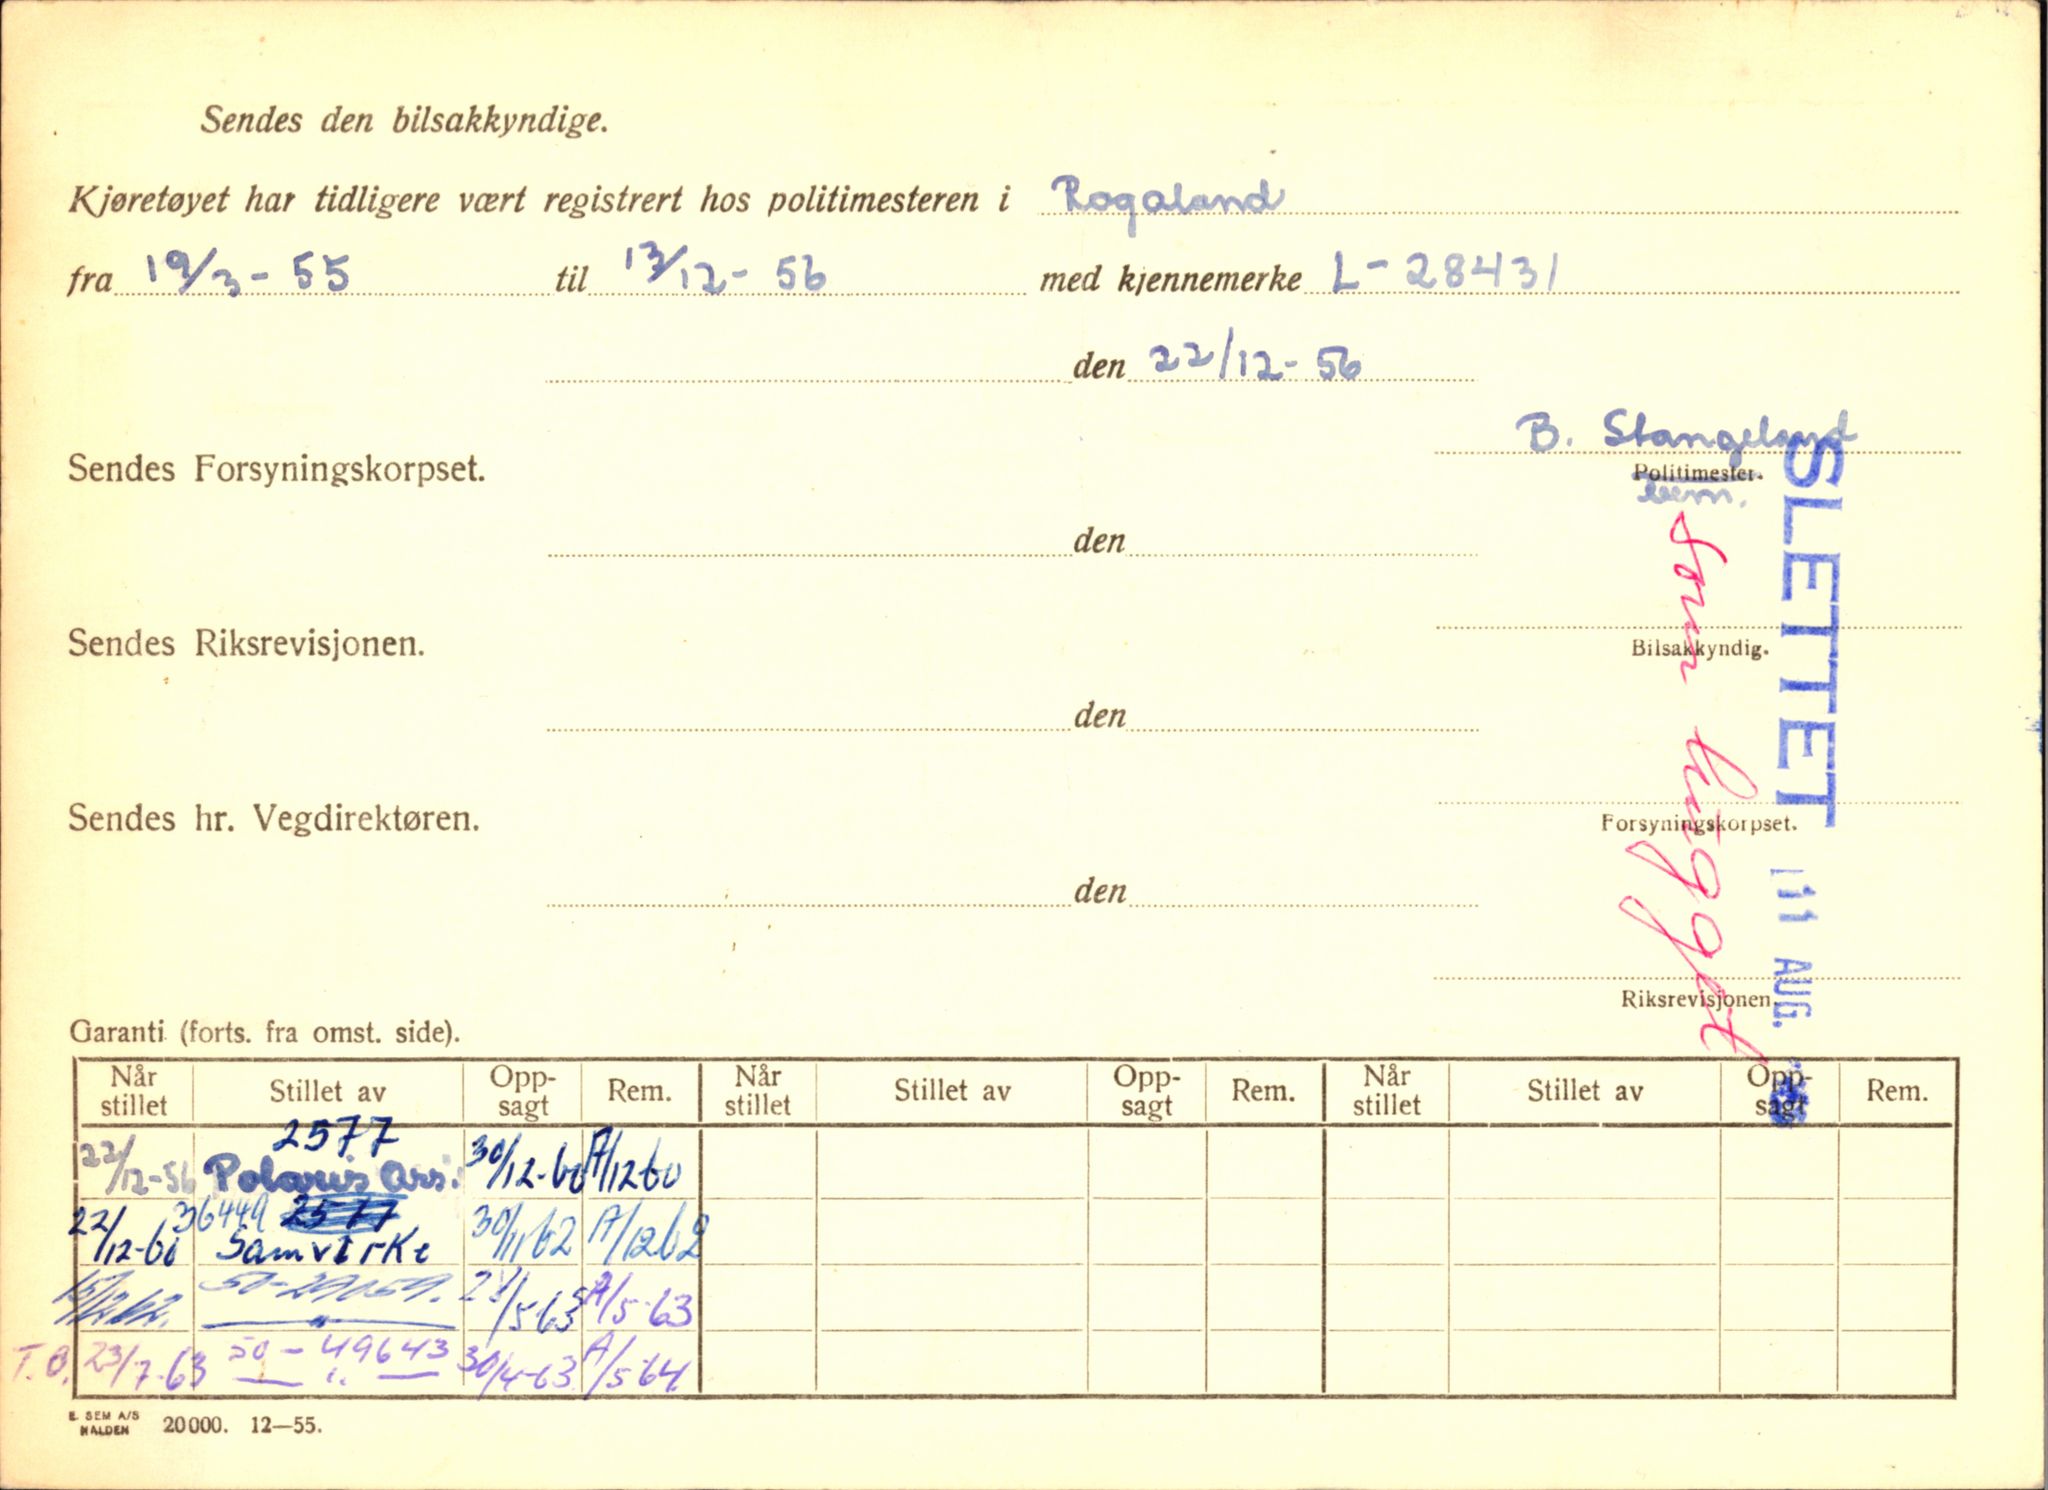 Sendes den bilsakkyndige.
Kjøretøyet har tidligere vært registrert hos politimesteren i Rogaland
fra 19/3 - 55 til 13/12 - 56 med kjennemerke L - 28431
den 22/12 - 56
B. Stangeland
Sendes Forsyningskorpset.
Politimester.
den
Sendes Riksrevisjonen.
Bilsakkyndig.
den
Sendes hr. Vegdirektøren.
Forsyningskorpset.
den
Riksrevisjonen.
SLETTET 11 AUG.
som hugget
Garanti (forts. fra omst. side).
Når stillet Stillet av Opp-sagt Rem. Når stillet Stillet av Opp-sagt Rem. Når stillet Stillet av Opp-sagt Rem.
2577
22/12-56 Polaris Ass. 30/12-60 A/12 60
36449 2577
22/12-60 Samvirke 30/11 62 A/12 62
15/12.62. /5-63 A/5-63
T.B. 23/7-63 50 - 49643 30/4-63 A/5-64
E. SEM A/S HALDEN 20000. 12—55.